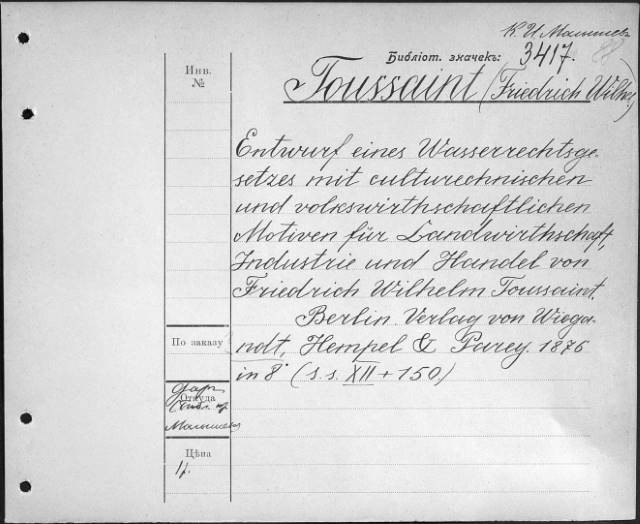 К. И. Малышев
Библіот. значекъ: 3417.
Инв. №
Toussaint (Friedrich Wilh.)
Entwurf eines Wasserrechtsge-
setzes mit culturechnischen
und volkswirthschaftlichen
Motiven für Landwirthschaft,
Industrie und Handel von
Friedrich Wilhelm Toussaint.
Berlin. Verlag von Wiega-
По заказу
ndt, Hempel & Parey. 1876
in 8° (s. s. XII + 150)
Откуда
Малышева
Цѣна
1 р.